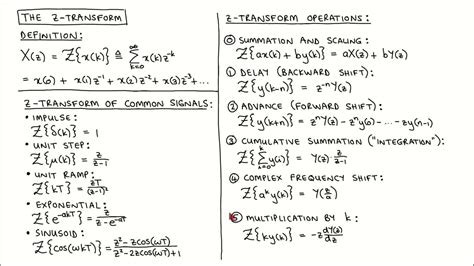 THE Z-TRANSFORM
DEFINITION:
X(z) = Z{x(k)} ≜ ∞Σk=0 x(k)z^-k
= x(0) + x(1)z^-1 + x(2)z^-2 + x(3)z^-3 + ...
Z-TRANSFORM OF COMMON SIGNALS:
• IMPULSE:
Z{δ(k)} = 1
• UNIT STEP:
Z{μ(k)} = z/(z-1)
• UNIT RAMP:
Z{kT} = zT/(z-1)²
• EXPONENTIAL:
Z{e^-akT} = z/(z-e^-aT)
• SINUSOID:
Z{cos(ωkT)} = (z²-zcos(ωT))/(z²-2zcos(ωT)+1)
Z-TRANSFORM OPERATIONS:
⓪ SUMMATION AND SCALING:
Z{ax(k) + by(k)} = aX(z) + bY(z)
① DELAY (BACKWARD SHIFT):
Z{y(k-n)} = z^-n Y(z)
② ADVANCE (FORWARD SHIFT):
Z{y(k+n)} = z^n Y(z) - z^n y(0) - ... - zy(n-1)
③ CUMULATIVE SUMMATION ("INTEGRATION"):
Z{kΣi=0 y(i)} = Y(z)·z/(z-1)
④ COMPLEX FREQUENCY SHIFT:
Z{a^k y(k)} = Y(z/a)
⑤ MULTIPLICATION BY k:
Z{ky(k)} = -z dY(z)/dz